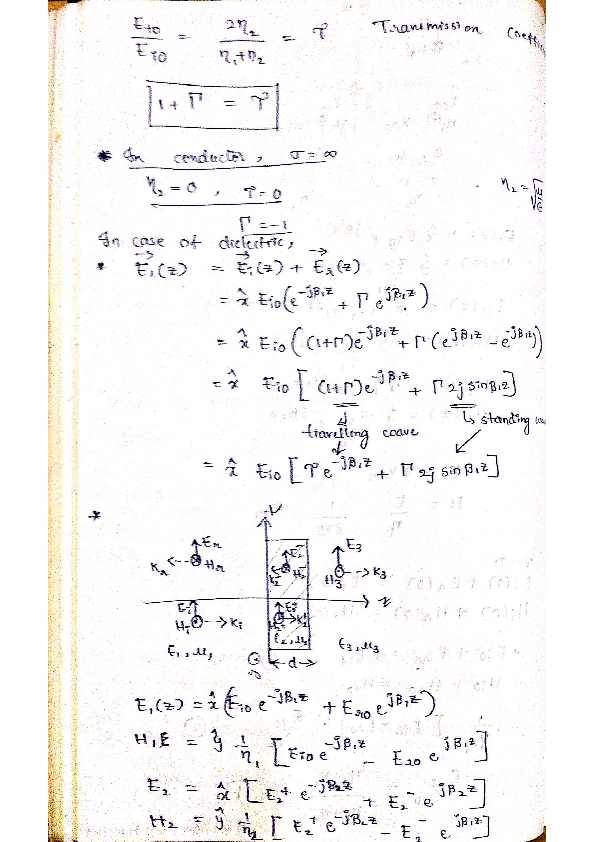 E_to / E_io = 2η₂ / (η₁+η₂) = τ Transmission
1 + Γ = τ
* In conductor, σ = ∞
η₂ = 0 , τ = 0 . η₂ = √(μ/ε)
Γ = -1
In case of dielectric,
* E⃗₁(z) = E⃗i(z) + E⃗r(z)
= x̂ Eio(e^-jβ₁z + Γ e^jβ₁z)
= x̂ Eio((1+Γ)e^-jβ₁z + Γ(e^jβ₁z - e^-jβ₁z))
= x̂ Eio[(1+Γ)e^-jβ₁z + Γ 2j sinβ₁z]
↓ travelling wave ↳ standing
= x̂ Eio[τ e^-jβ₁z + Γ 2j sin β₁z]
*
Er E₂⁻ E₃
Kr Hr K₂⁻ H₂⁻ H₃ K₃
z
Ei E₂⁺
Hi Ki H₂⁺ K₂⁺
ε₁, μ₁ ε₂, μ₂ ε₃, μ₃
d
E₁(z) = x̂(Eio e^-jβ₁z + Ero e^jβ₁z)
H₁ = ŷ 1/η₁ [Eio e^-jβ₁z - Ero e^jβ₁z]
E₂ = x̂ [E₂⁺ e^-jβ₂z + E₂⁻ e^jβ₂z]
H₂ = ŷ 1/η₂ [E₂⁺ e^-jβ₂z - E₂⁻ e^jβ₂z]